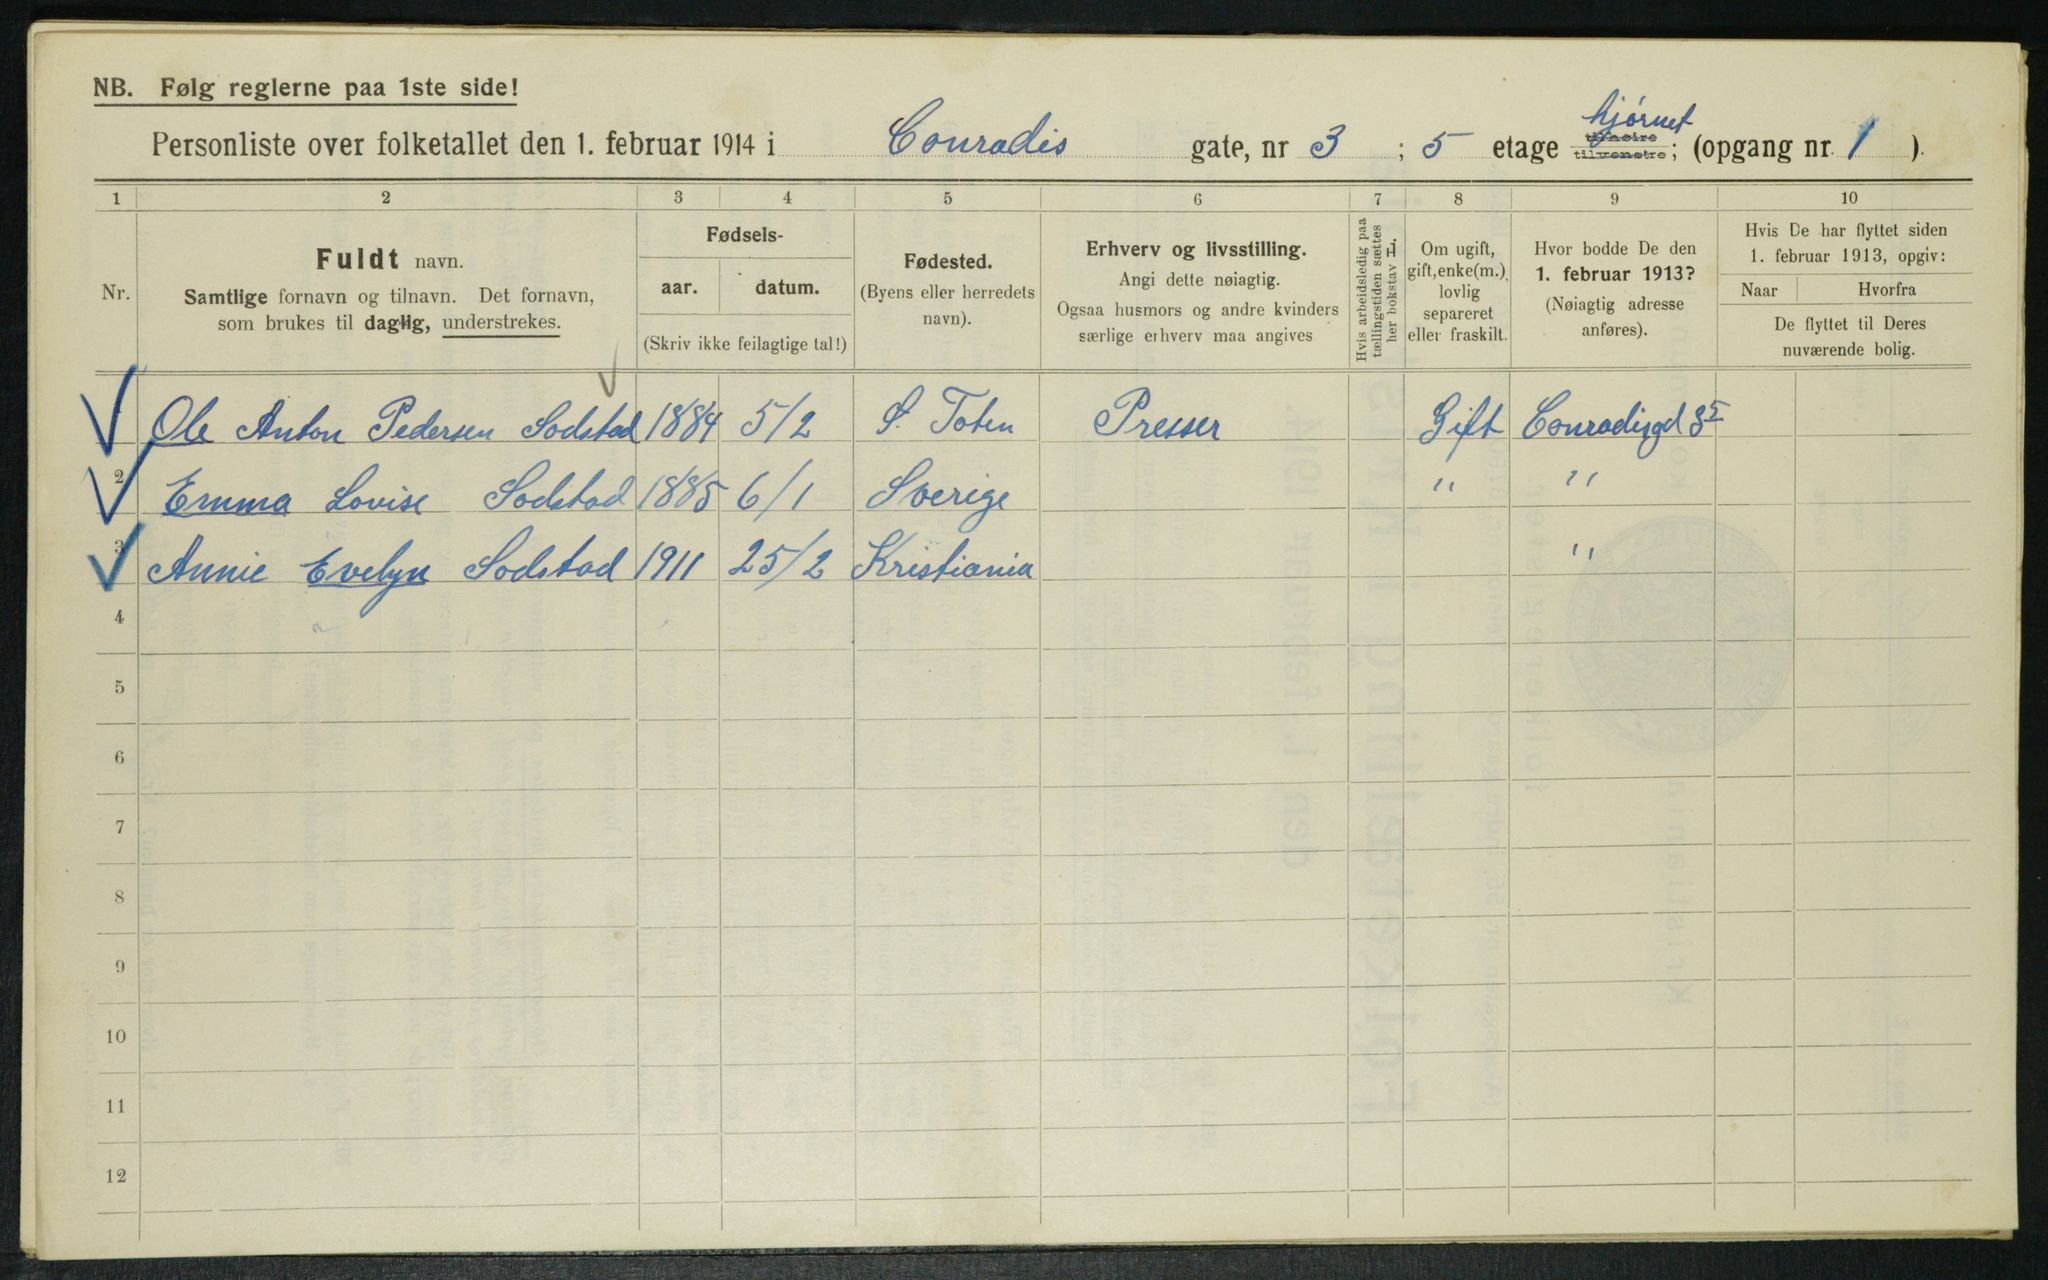 NB. Følg reglerne paa 1ste side!
Personliste over folketallet den 1. februar 1914 i Conradis gate, nr 3 ; 5 etage hjørnet tilhøire tilvenstre; (opgang nr. 1 ).
1 2 3 4 5 6 7 8 9 10
Nr.
Fuldt navn.
Samtlige fornavn og tilnavn. Det fornavn,
som brukes til daglig, understrekes.
Fødsels-
aar. datum.
(Skriv ikke feilagtige tal!)
Fødested.
(Byens eller herredets
navn).
Erhverv og livsstilling.
Angi dette nøiagtig.
Ogsaa husmors og andre kvinders
særlige erhverv maa angives
Hvis arbeidsledig paa
tællingstiden sættes
her bokstav L.
Om ugift,
gift, enke(m.),
lovlig
separeret
eller fraskilt.
Hvor bodde De den
1. februar 1913?
(Nøiagtig adresse
anføres).
Hvis De har flyttet siden
1. februar 1913, opgiv:
Naar Hvorfra
De flyttet til Deres
nuværende bolig.
Ole Anton Pedersen Sodstad 1884 5/2 Ø. Toten Presser Gift Conradisgd 3 5
2 Emma Lovise Sodstad 1885 6/1 Sverige " "
3 Annie Evelyn Sodstad 1911 25/2 Kristiania "
4
5
6
7
8
9
10
11
12